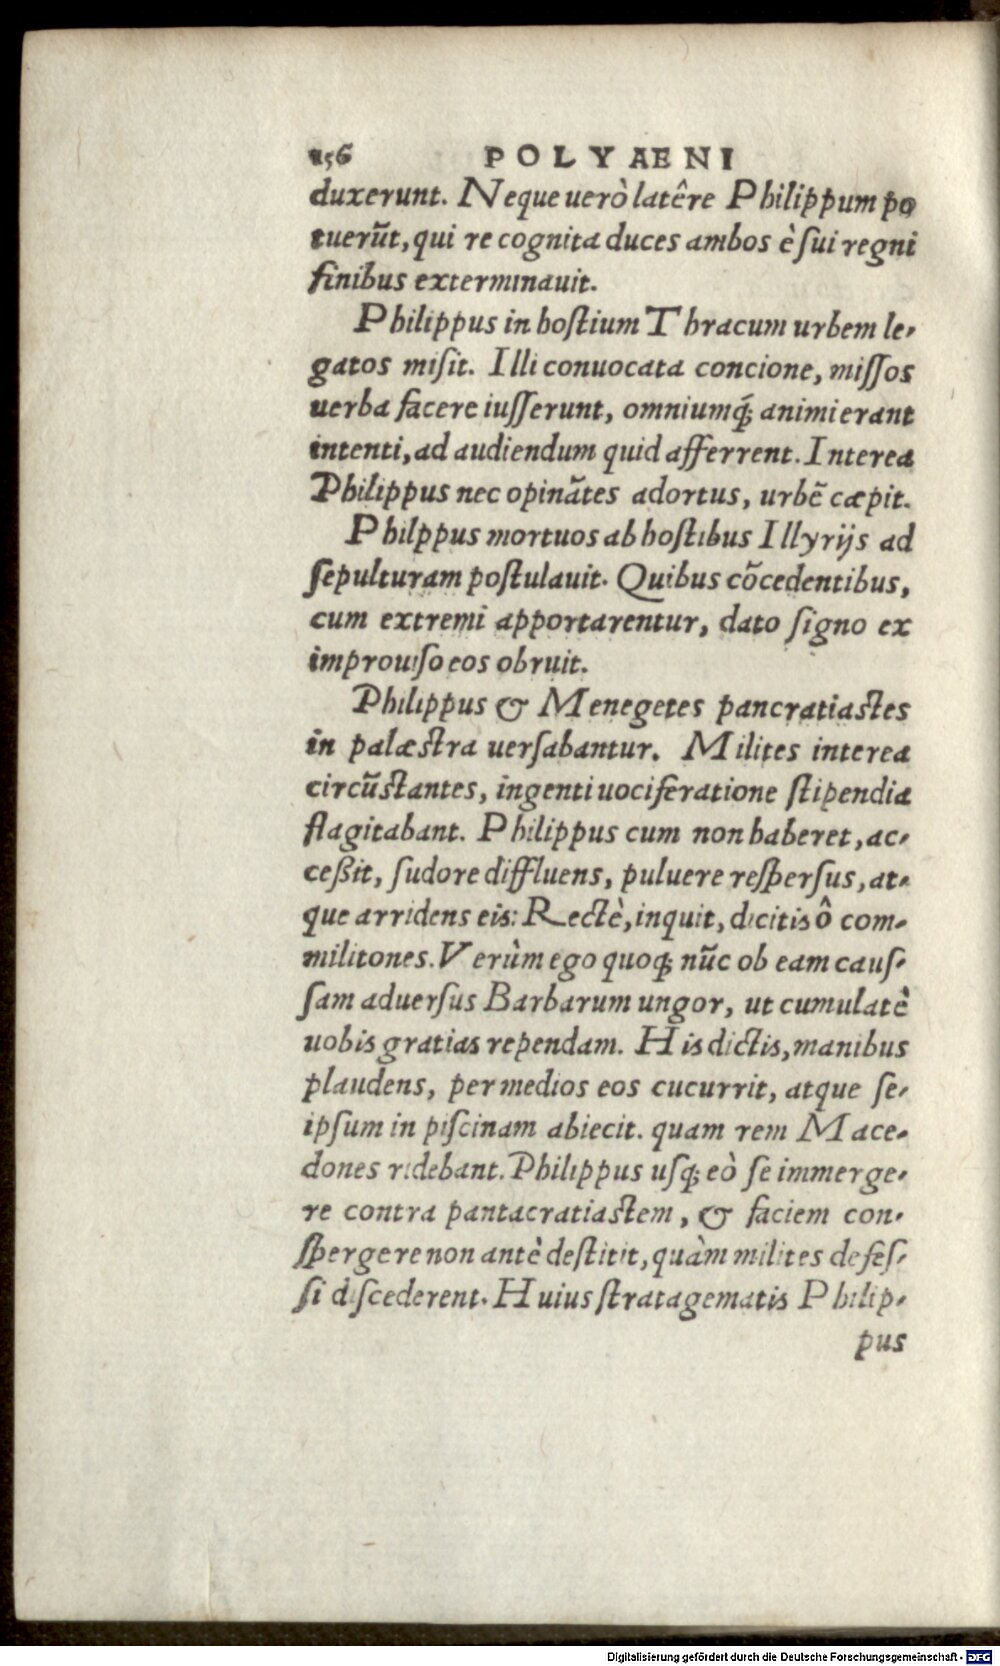 156 POLYAENI
duxerunt. Neque uerò latêre Philippum po
tuerũt, qui re cognita duces ambos è sui regni
finibus exterminauit.
Philippus in hostium Thracum urbem le-
gatos misit. Illi conuocata concione, missos
uerba facere iusserunt, omniumq́; animi erant
intenti, ad audiendum quid afferrent. Interea
Philippus nec opinãtes adortus, urbẽ cæpit.
Philppus mortuos ab hostibus Illyrijs ad
sepulturam postulauit. Quibus cõcedentibus,
cum extremi apportarentur, dato signo ex
improuiso eos obruit.
Philippus & Menegetes pancratiastes
in palæstra uersabantur. Milites interea
circũstantes, ingenti uociferatione stipendia
flagitabant. Philippus cum non haberet, ac-
ceßit, sudore diffluens, puluere respersus, at-
que arridens eis: Rectè, inquit, dicitis ô com-
militones. Verùm ego quoq; nũc ob eam caus-
sam aduersus Barbarum ungor, ut cumulatè
uobis gratias rependam. His dictis, manibus
plaudens, per medios eos cucurrit, atque se-
ipsum in piscinam abiecit. quam rem Mace-
dones ridebant. Philippus usq; eò se immerge-
re contra pantacratiastem, & faciem con-
spergere non antè destitit, quàm milites defes-
si discederent. Huius stratagematis Philip-
pus
Digitalisierung gefördert durch die Deutsche Forschungsgemeinschaft - DFG